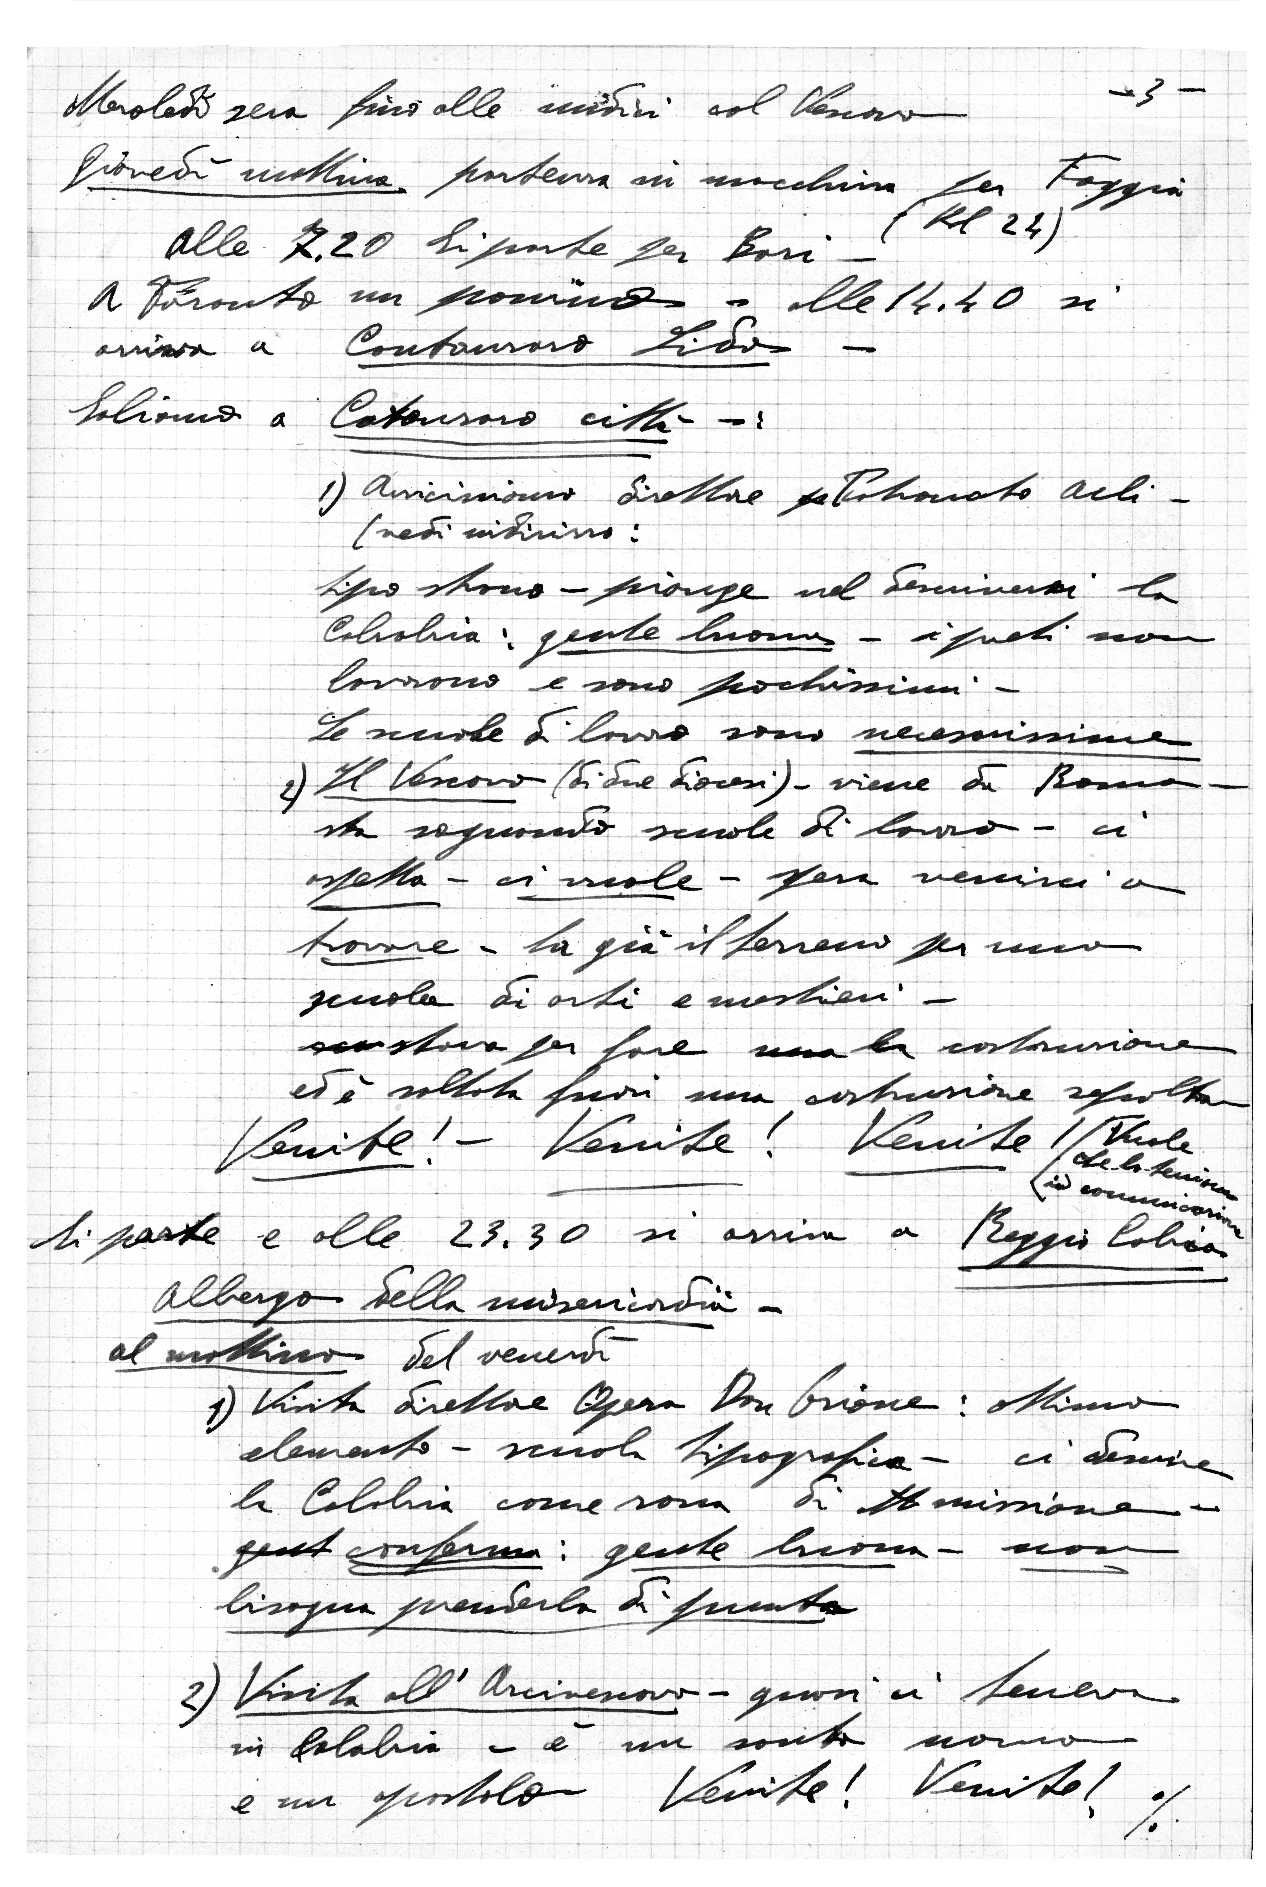 - 3 -
Mercoledì sera fino alle undici col Vescovo
Giovedì mattina partenza in macchina per Foggia
(Kl 24)
Alle 7.20 si parte per Bari -
A Taranto un panino - alle 14.40 si
arriva a Catanzaro Lido -
Saliamo a Catanzaro città - :
1) Avviciniamo direttore Patronato Acli -
(vedi indirizzo:
tipo strano - piange nel descriverci la
Calabria: gente buona - i preti non
lavorano e sono pochissimi -
Le scuole di lavoro sono necessarissime
2) Il Vescovo (di due diocesi) - viene da Roma -
sta sognando scuole di lavoro - ci
aspetta - ci vuole - spera venirci a
trovare - ha già il terreno per una
scuola di arti e mestieri -
stava per fare la costruzione
ed è saltata fuori una costruzione sepolta
Venite! - Venite! Venite! (Vuole
che lo teniamo
in comunicazione
Si parte e alle 23.30 si arriva a Reggio Calabria
Albergo della misericordia -
al mattino del venerdì
1) Visita direttore Opera Don Orione: ottimo
elemento - scuola tipografica - ci descrive
la Calabria come zona di missione -
gent conferma: gente buona - non
bisogna prenderla di punta
2) Visita all'Arcivescovo - quasi ci teneva
in Calabria - è un santo uomo
e un apostolo Venite! Venite! %